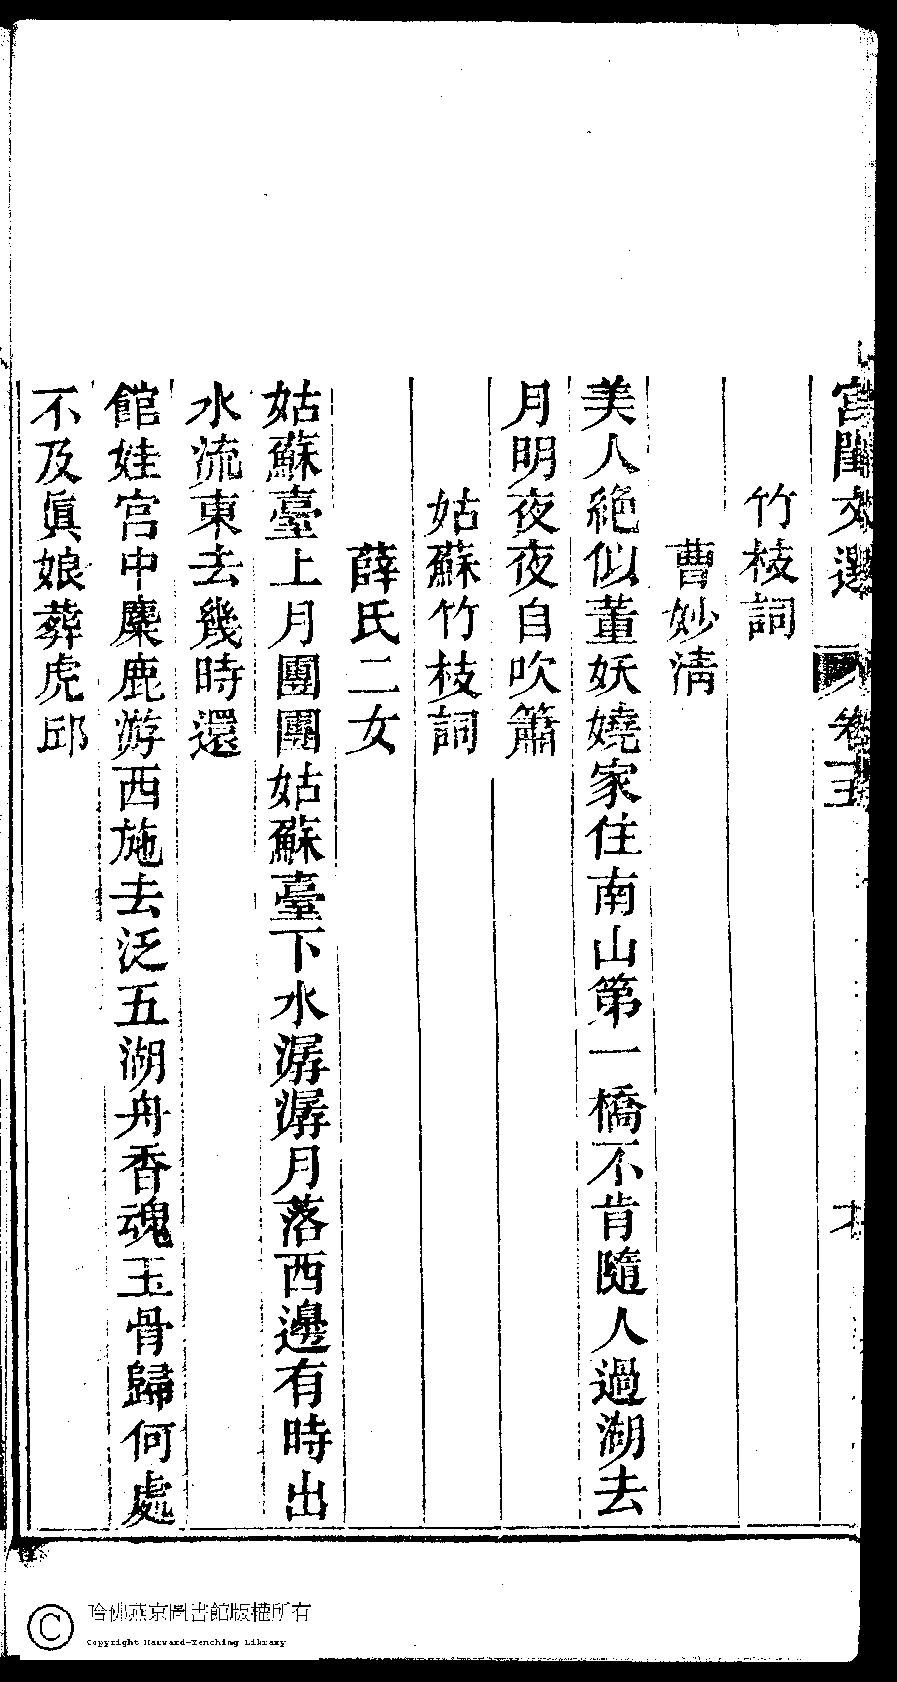 宮閨文選 卷二五
竹枝詞
曹妙清
美人絕似董妖嬈家住南山第一橋不肯隨人過湖去
月明夜夜自吹簫
姑蘇竹枝詞
薛氏二女
姑蘇臺上月團團姑蘇臺下水潺潺月落西邊有時出
水流東去幾時還
館娃宮中麋鹿游西施去泛五湖舟香魂玉骨歸何處
不及眞娘葬虎邱
哈佛燕京圖書館版權所有
Copyright Harvard-Yenching Library